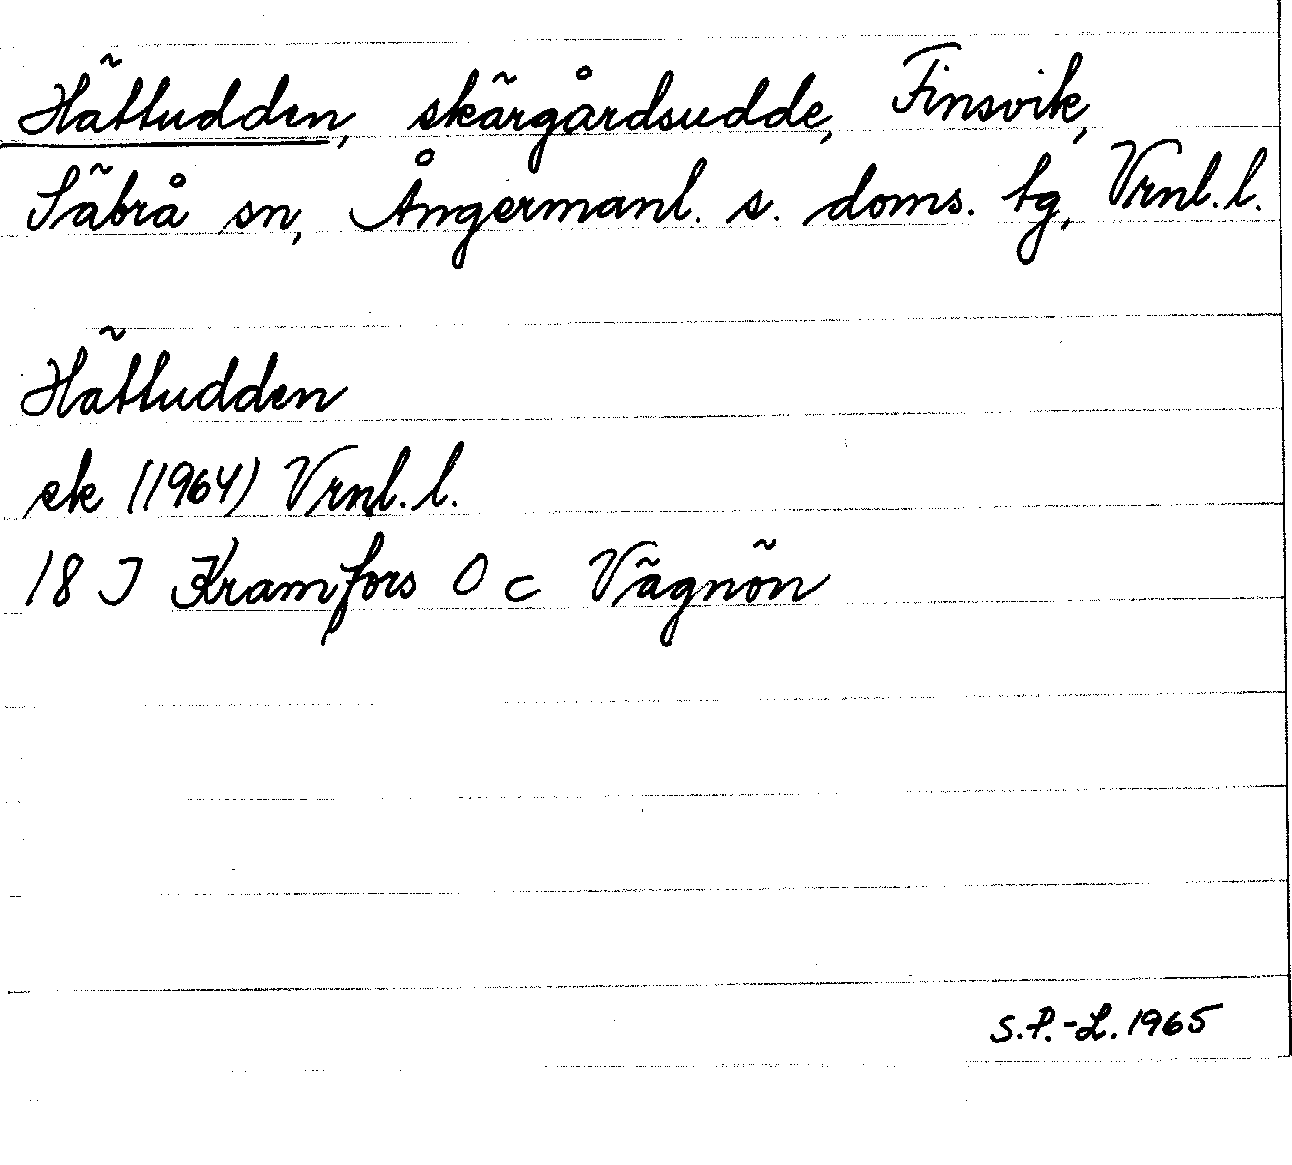 Hätludden, skärgårdsudde, Finsvik,
Säbrå sn, Ångermanl. s. doms. tg, Vrnl. l.
Hätludden
ek (1964) Vrnl. l.
18 J Kramfors O c Vägnön
S.P.-L. 1965